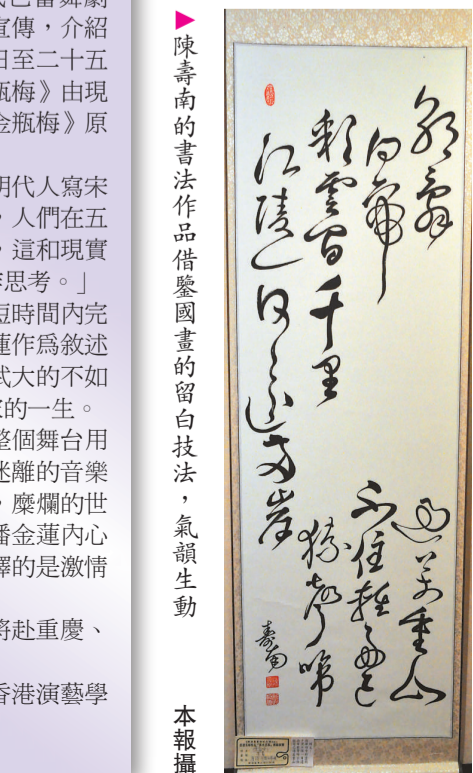 芭蕾舞劇
宣傳，介紹
日至二十五
瓶梅》由現
金瓶梅》原
明代人寫宋
，人們在五
，這和現實
思考。」
短時間內完
蓮作爲敘述
武大的不如
的一生。
整個舞台用
迷離的音樂
，糜爛的世
潘金蓮內心
繹的是激情
將赴重慶、
香港演藝學
▶陳壽南的書法作品借鑒國畫的留白技法，氣韻生動　本報攝
朝辭
白帝
彩雲間千里
江陵一日還兩岸
猿聲啼
不住輕舟已
過萬重山
壽南